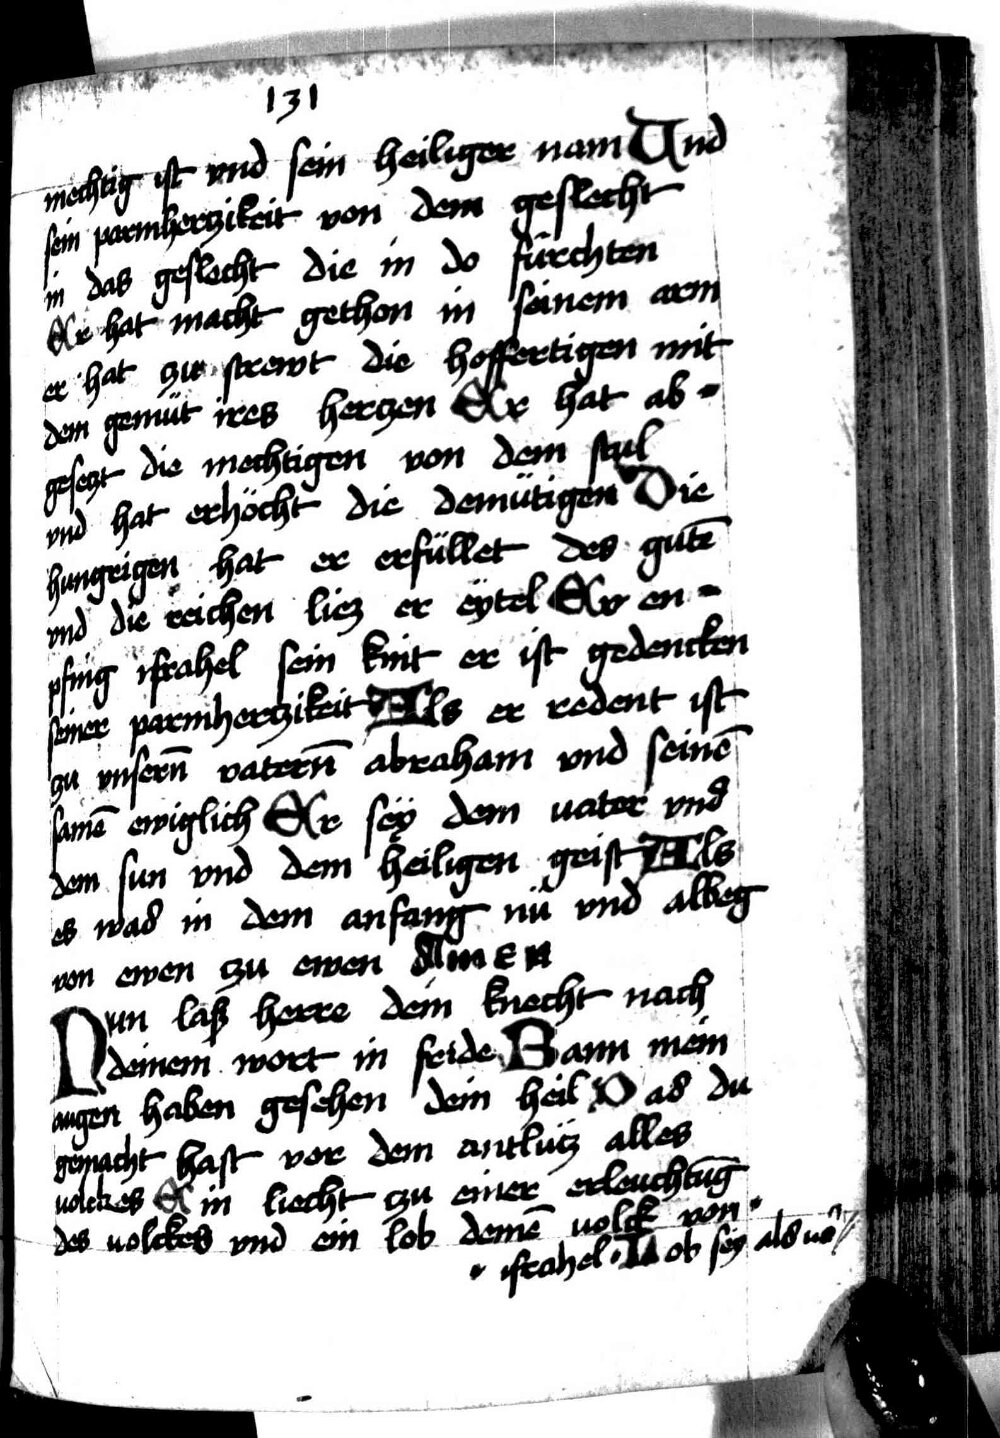 131
mechtig ist vnd sein heiliger nam Vnd
sein parmhertzikeit von dem geslecht
in das geslecht die in do fürchten
Er hat macht gethon in seinem arm
er hat zu strewt die hoffertigen mit
dem gemüt ires hertzen Er hat ab-
gesetzt die mechtigen von dem stul
vnd hat erhöcht die demütigen Die
hungrigen hat er erfüllet des gutē
vnd die reichen liez er eytel Er en-
pfing israhel sein kint er ist gedencken
seiner parmhertzikeit Als er redent ist
zu vnsern̄ vatern̄ abraham vnd seinē
samē ewiglich Er sey dem vater vnd
dem sun vnd dem heiligen geist Als
es was in dem anfang nu vnd albeg
von ewen zu ewen Amen
Nun laß herre dein knecht nach
deinem wort in fride Bann mein
augen haben gesehen dein heil Das du
gemacht hast vor dem antlütz alles
volckes Ein liecht zu einer erleuchtūg
des volckes vnd ein lob demē volck von
israhel Lob sey als vō